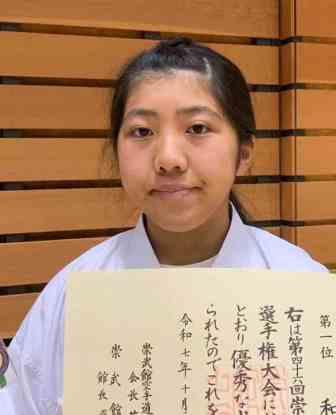 第一位
右は第四十六回崇
選手権大会に
とおり優秀な
られたのでこれを
令和七年十月
崇武館空手道
会長
崇武館
館長